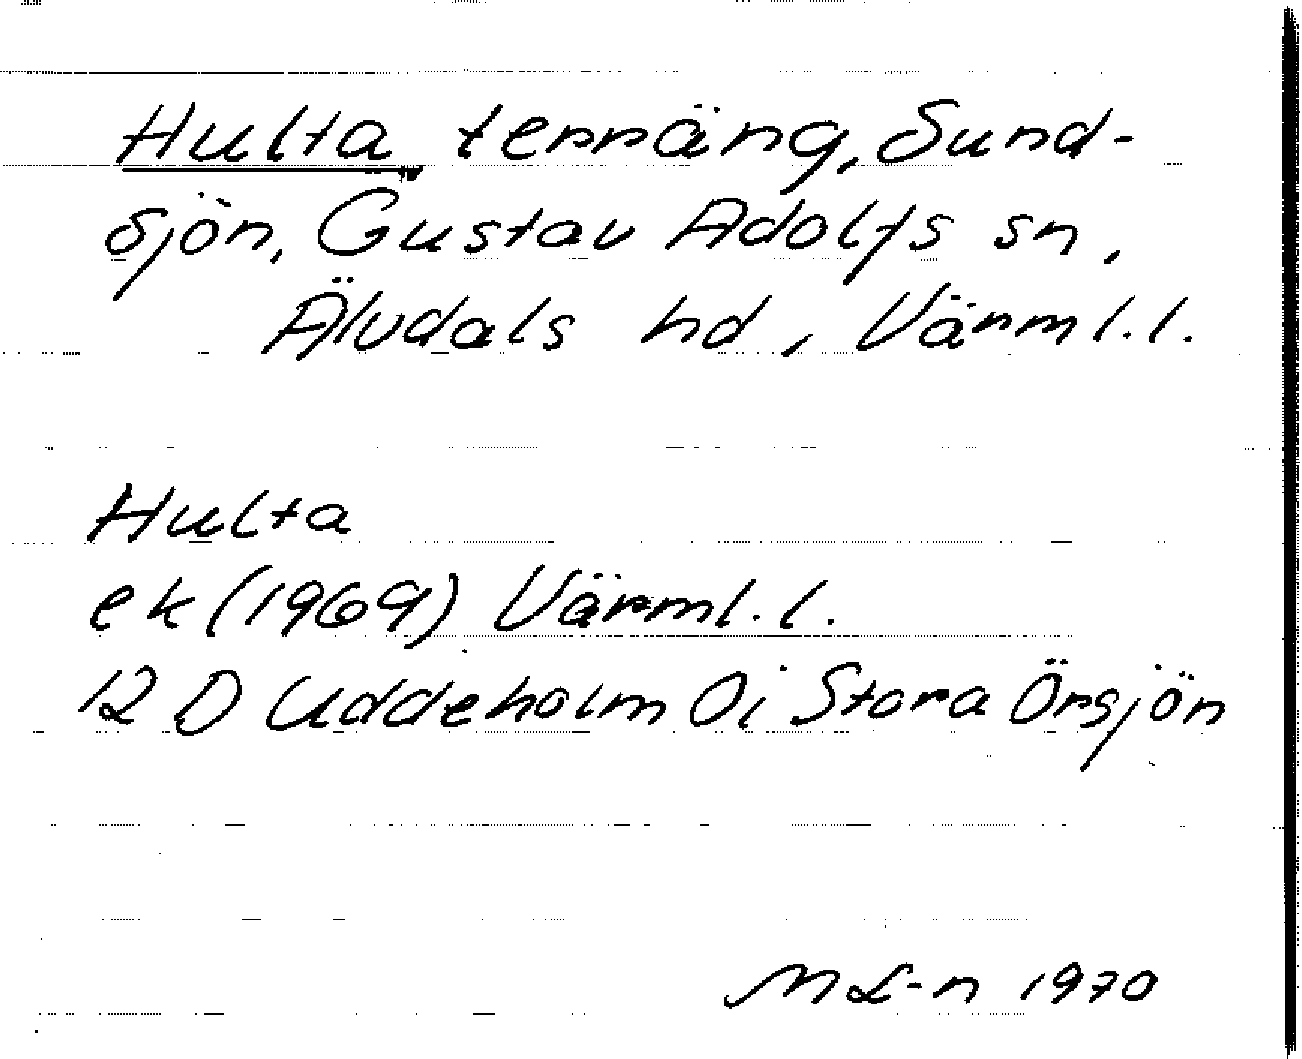 Hulta, terräng, Sund-
sjön, Gustav Adolfs sn,
Älvdals hd, Värml. l.
Hulta
ek (1969) Värml. l.
12 D Uddeholm 0i Stora Örsjön
M L-n 1970